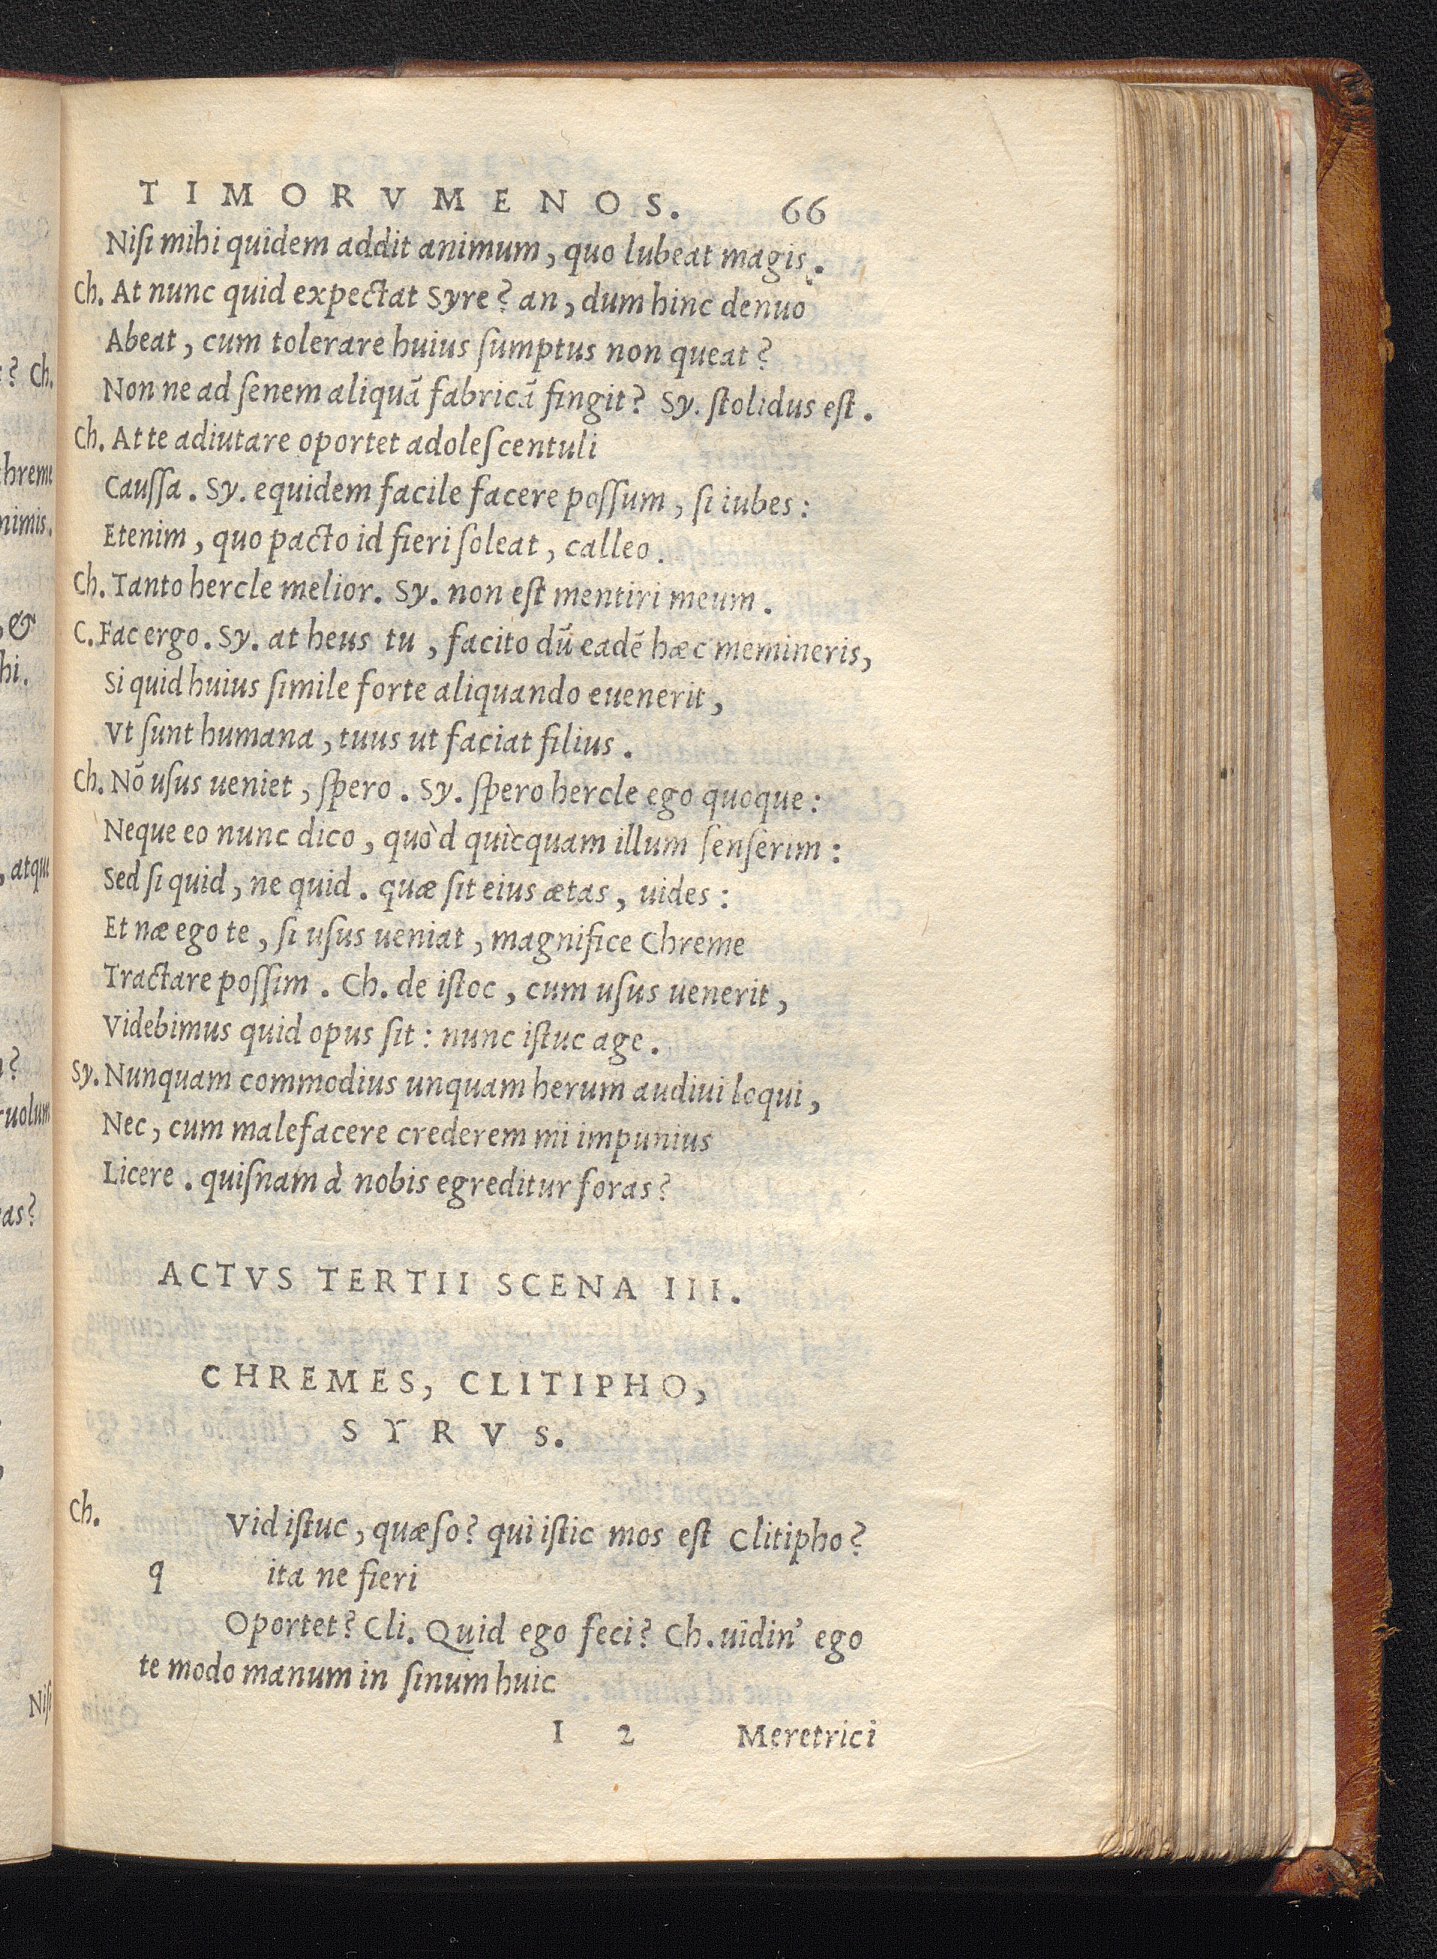 TIMORVMENOS. 66
Niſi mihi quidem addit animum, quo lubeat magis.
Ch. At nunc quid expectat Syre? an, dum hinc denuo
Abeat, cum tolerare huius ſumptus non queat?
Non ne ad ſenem aliquā fabricā fingit? Sy. ſtolidus eſt.
Ch. At te adiutare oportet adoleſcentuli
Cauſſa. Sy. equidem facile facere poſſum, ſi iubes:
Etenim, quo pacto id fieri ſoleat, calleo.
Ch. Tanto hercle melior. Sy. non eſt mentiri meum.
C. Fac ergo. Sy. at heus tu, facito dū eadē hæc memineris,
Si quid huius ſimile forte aliquando euenerit,
Vt ſunt humana, tuus ut faciat filius.
Ch. Nō uſus ueniet, ſpero. Sy. ſpero hercle ego quoque:
Neque eo nunc dico, quòd quicquam illum ſenſerim:
Sed ſi quid, ne quid. quæ ſit eius ætas, uides:
Et næ ego te, ſi uſus ueniat, magnifice Chreme
Tractare poſſim. Ch. de iſtoc, cum uſus uenerit,
Videbimus quid opus ſit: nunc iſtuc age.
Sy. Nunquam commodius unquam herum audiui loqui,
Nec, cum malefacere crederem mi impunius
Licere. quiſnam à nobis egreditur foras?
ACTVS TERTII SCENA III.
CHREMES, CLITIPHO,
SYRVS.
Ch. Vid iſtuc, quæſo? qui iſtic mos eſt Clitipho?
q ita ne fieri
Oportet? Cli. Quid ego feci? Ch. uidin' ego
te modo manum in ſinum huic
I 2 Meretrici